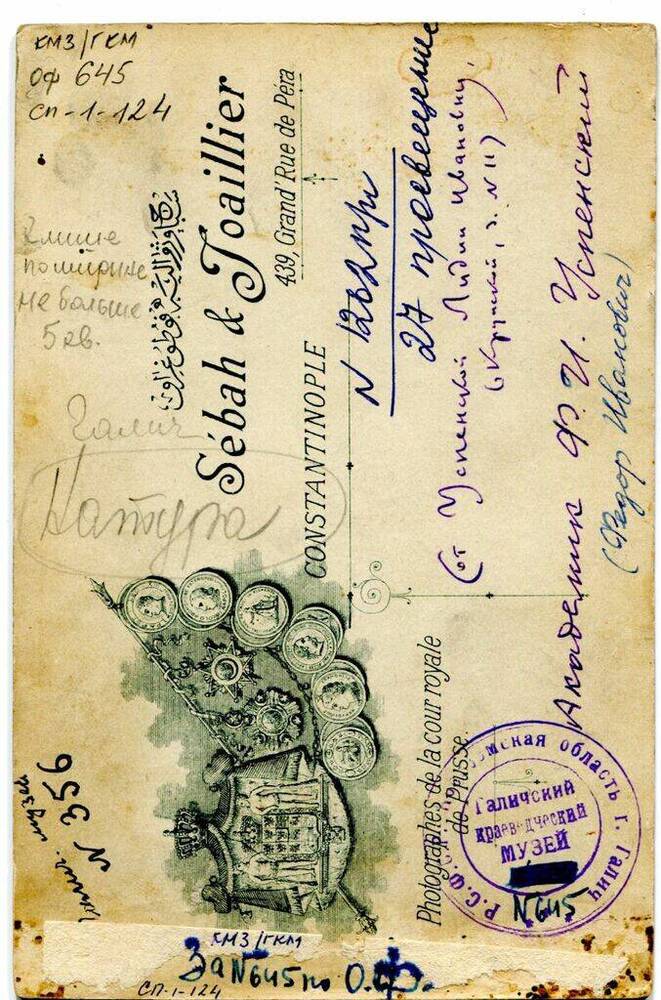 КМЗ/ГКМ
ОФ 645
СП-1-124
Клише
по ширине
не больше
5 кв.
Галич
Натура
Sébah & Joaillier
439, Grand'Rue de Péra
CONSTANTINOPLE
Photographes de la cour royale
de Prusse.
N 1282 при
27 просвещение
(от Успенской Лидии Ивановны,
(Крупской, д. N 11)
Академик Ф. И. Успенский
(Федор Иванович)
музей
N 356
Р.С.Ф. область г. Галич
Галичский
краеведческий
МУЗЕЙ
N645
КМЗ/ГКМ
За N645 по О.Ф.
СП-1-124